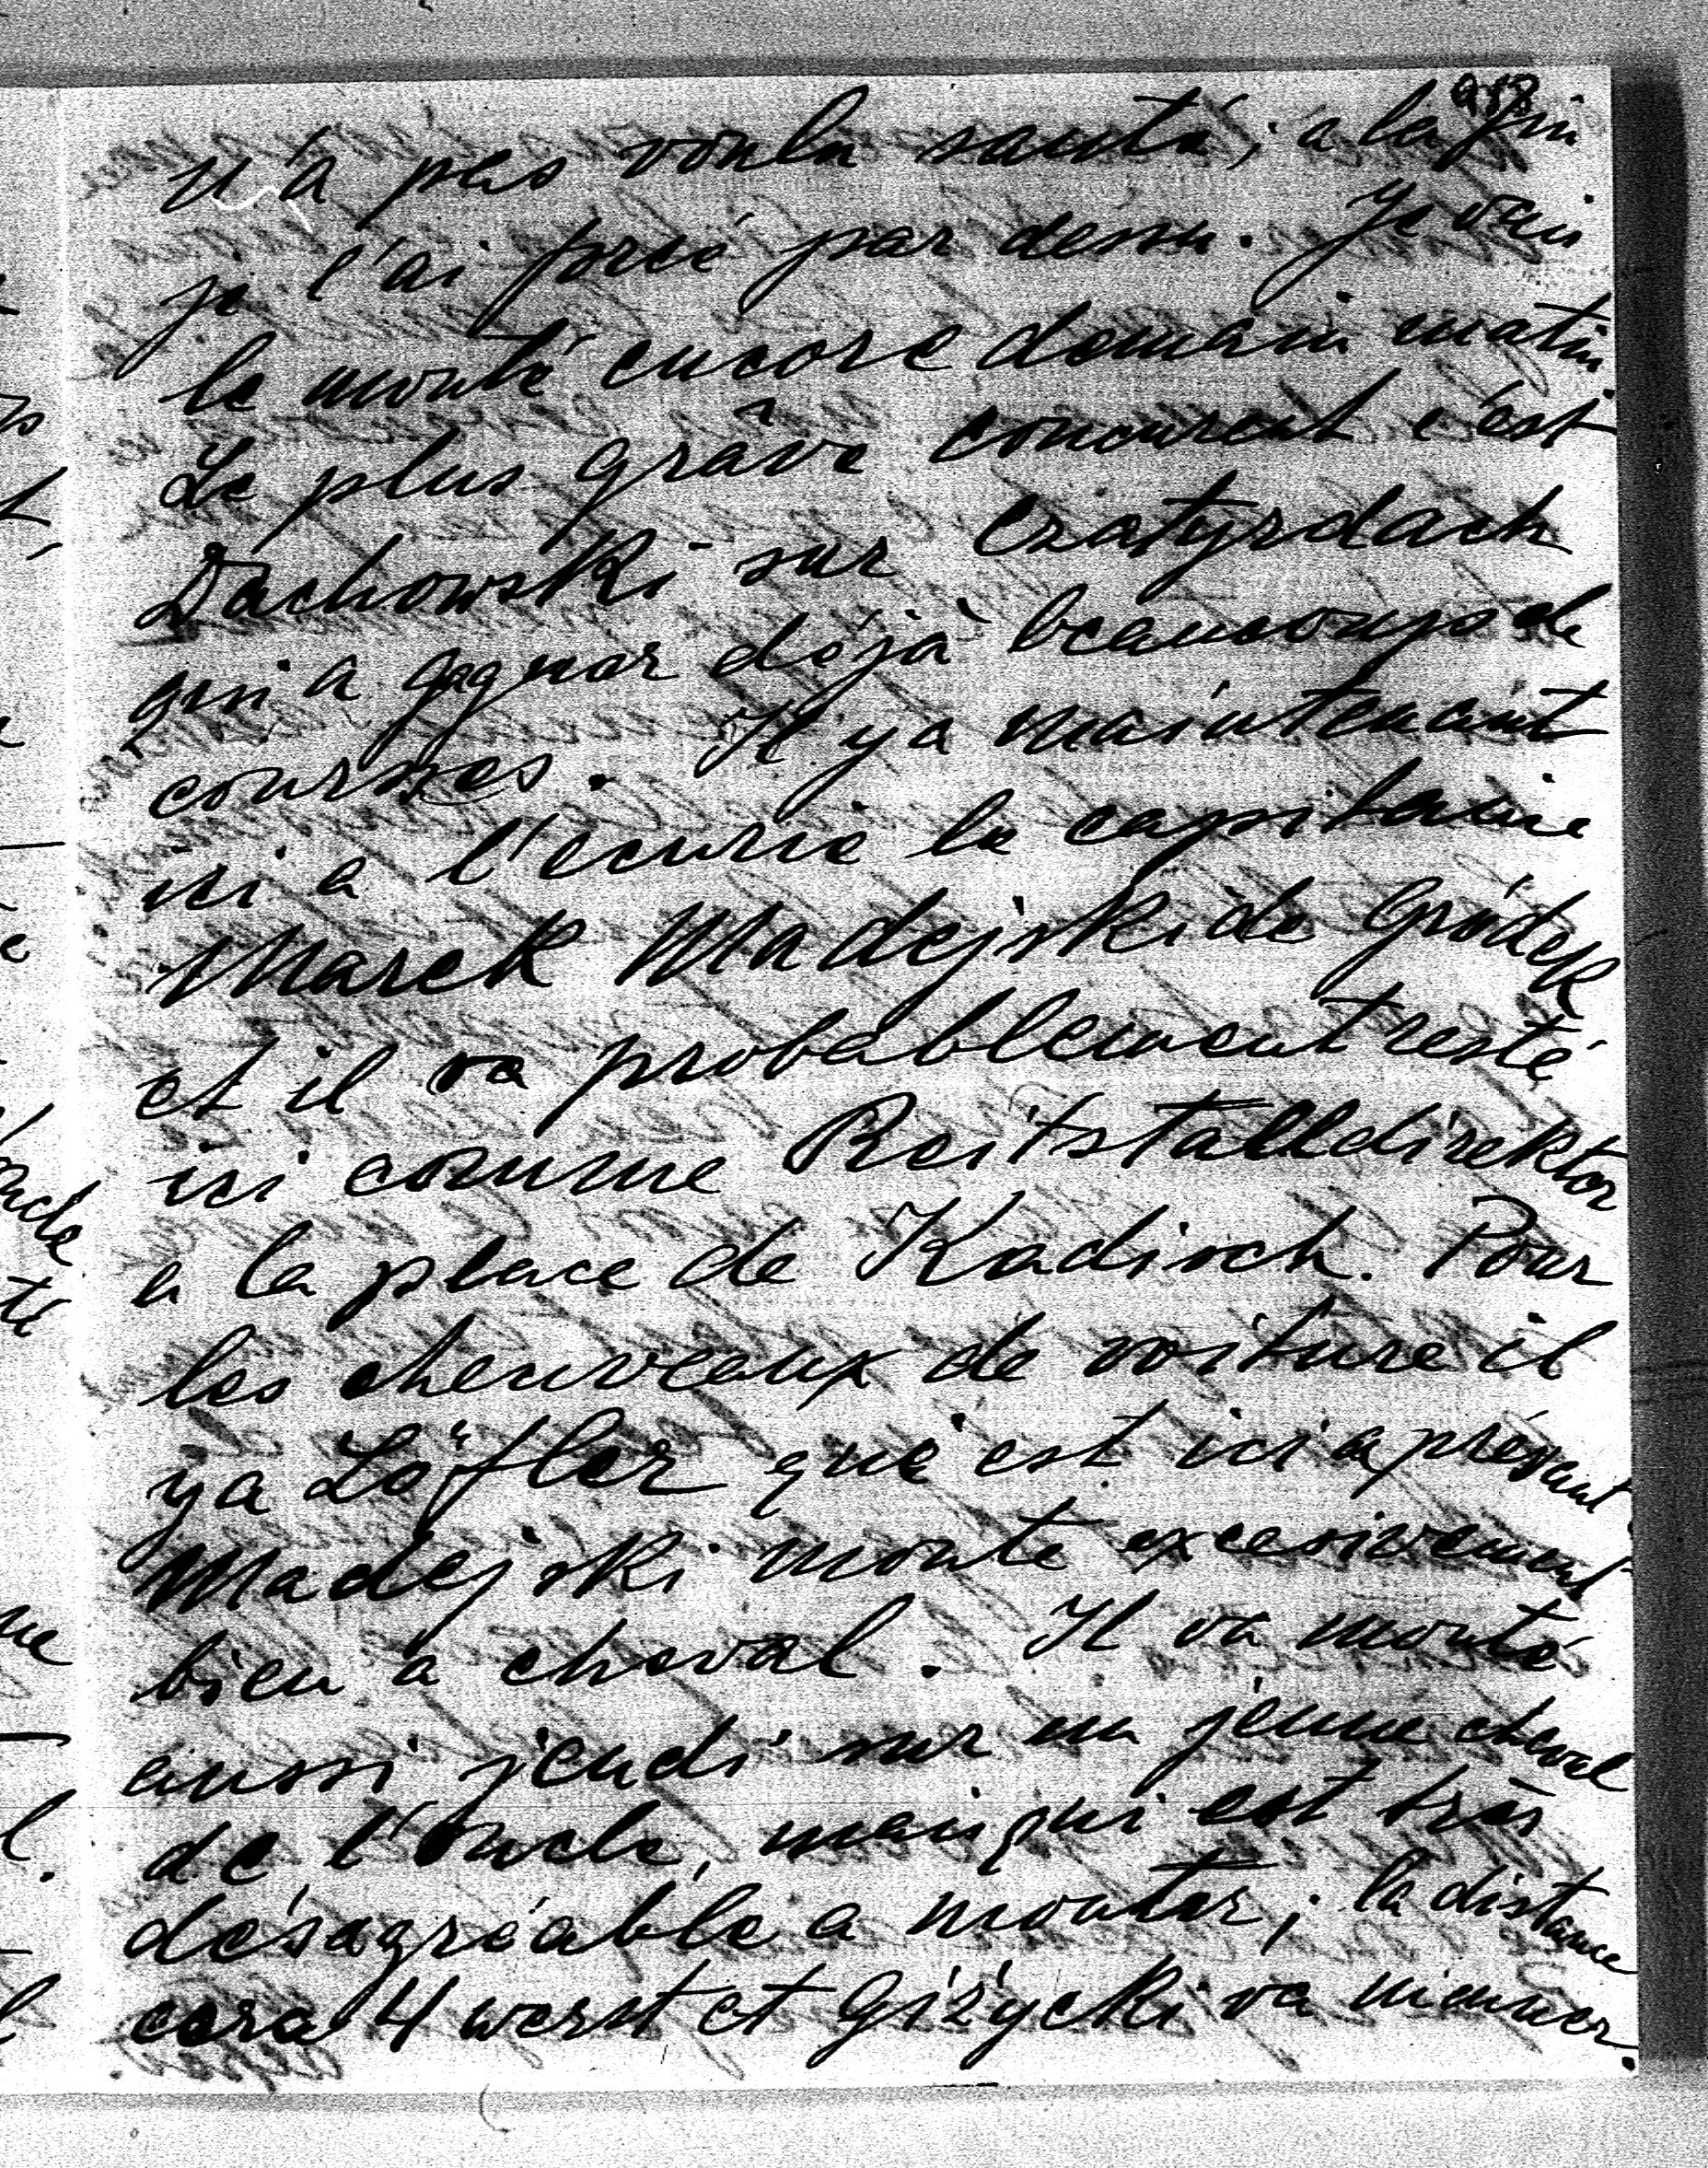 n'a pas voulu sauté; a la fin
je l'ai forcé par dessu. Je vais
le monté encore demain matin.
Le plus grâve concurent c'est
Dachowski sur Czatyrdach
qui a gagner déjà beaucoups de
courses. Il y a maintenant
ici a l'ecurie le capitaine
Marek Madejski de Gródek
et il va probablement resté
ici comme Reitstalldirektor
a la place de Kadisch. Pour
les cheuveaux de voiture il
ya Löfler que est ici a présent
Madejski monte excesivement
bien a cheval. Il va monté
aussi jeudi sur un jeune cheval
de l'Oncle, mais qui est très
désagréable a monter; la distance
cera 4 werst et Giżycki va mienner.